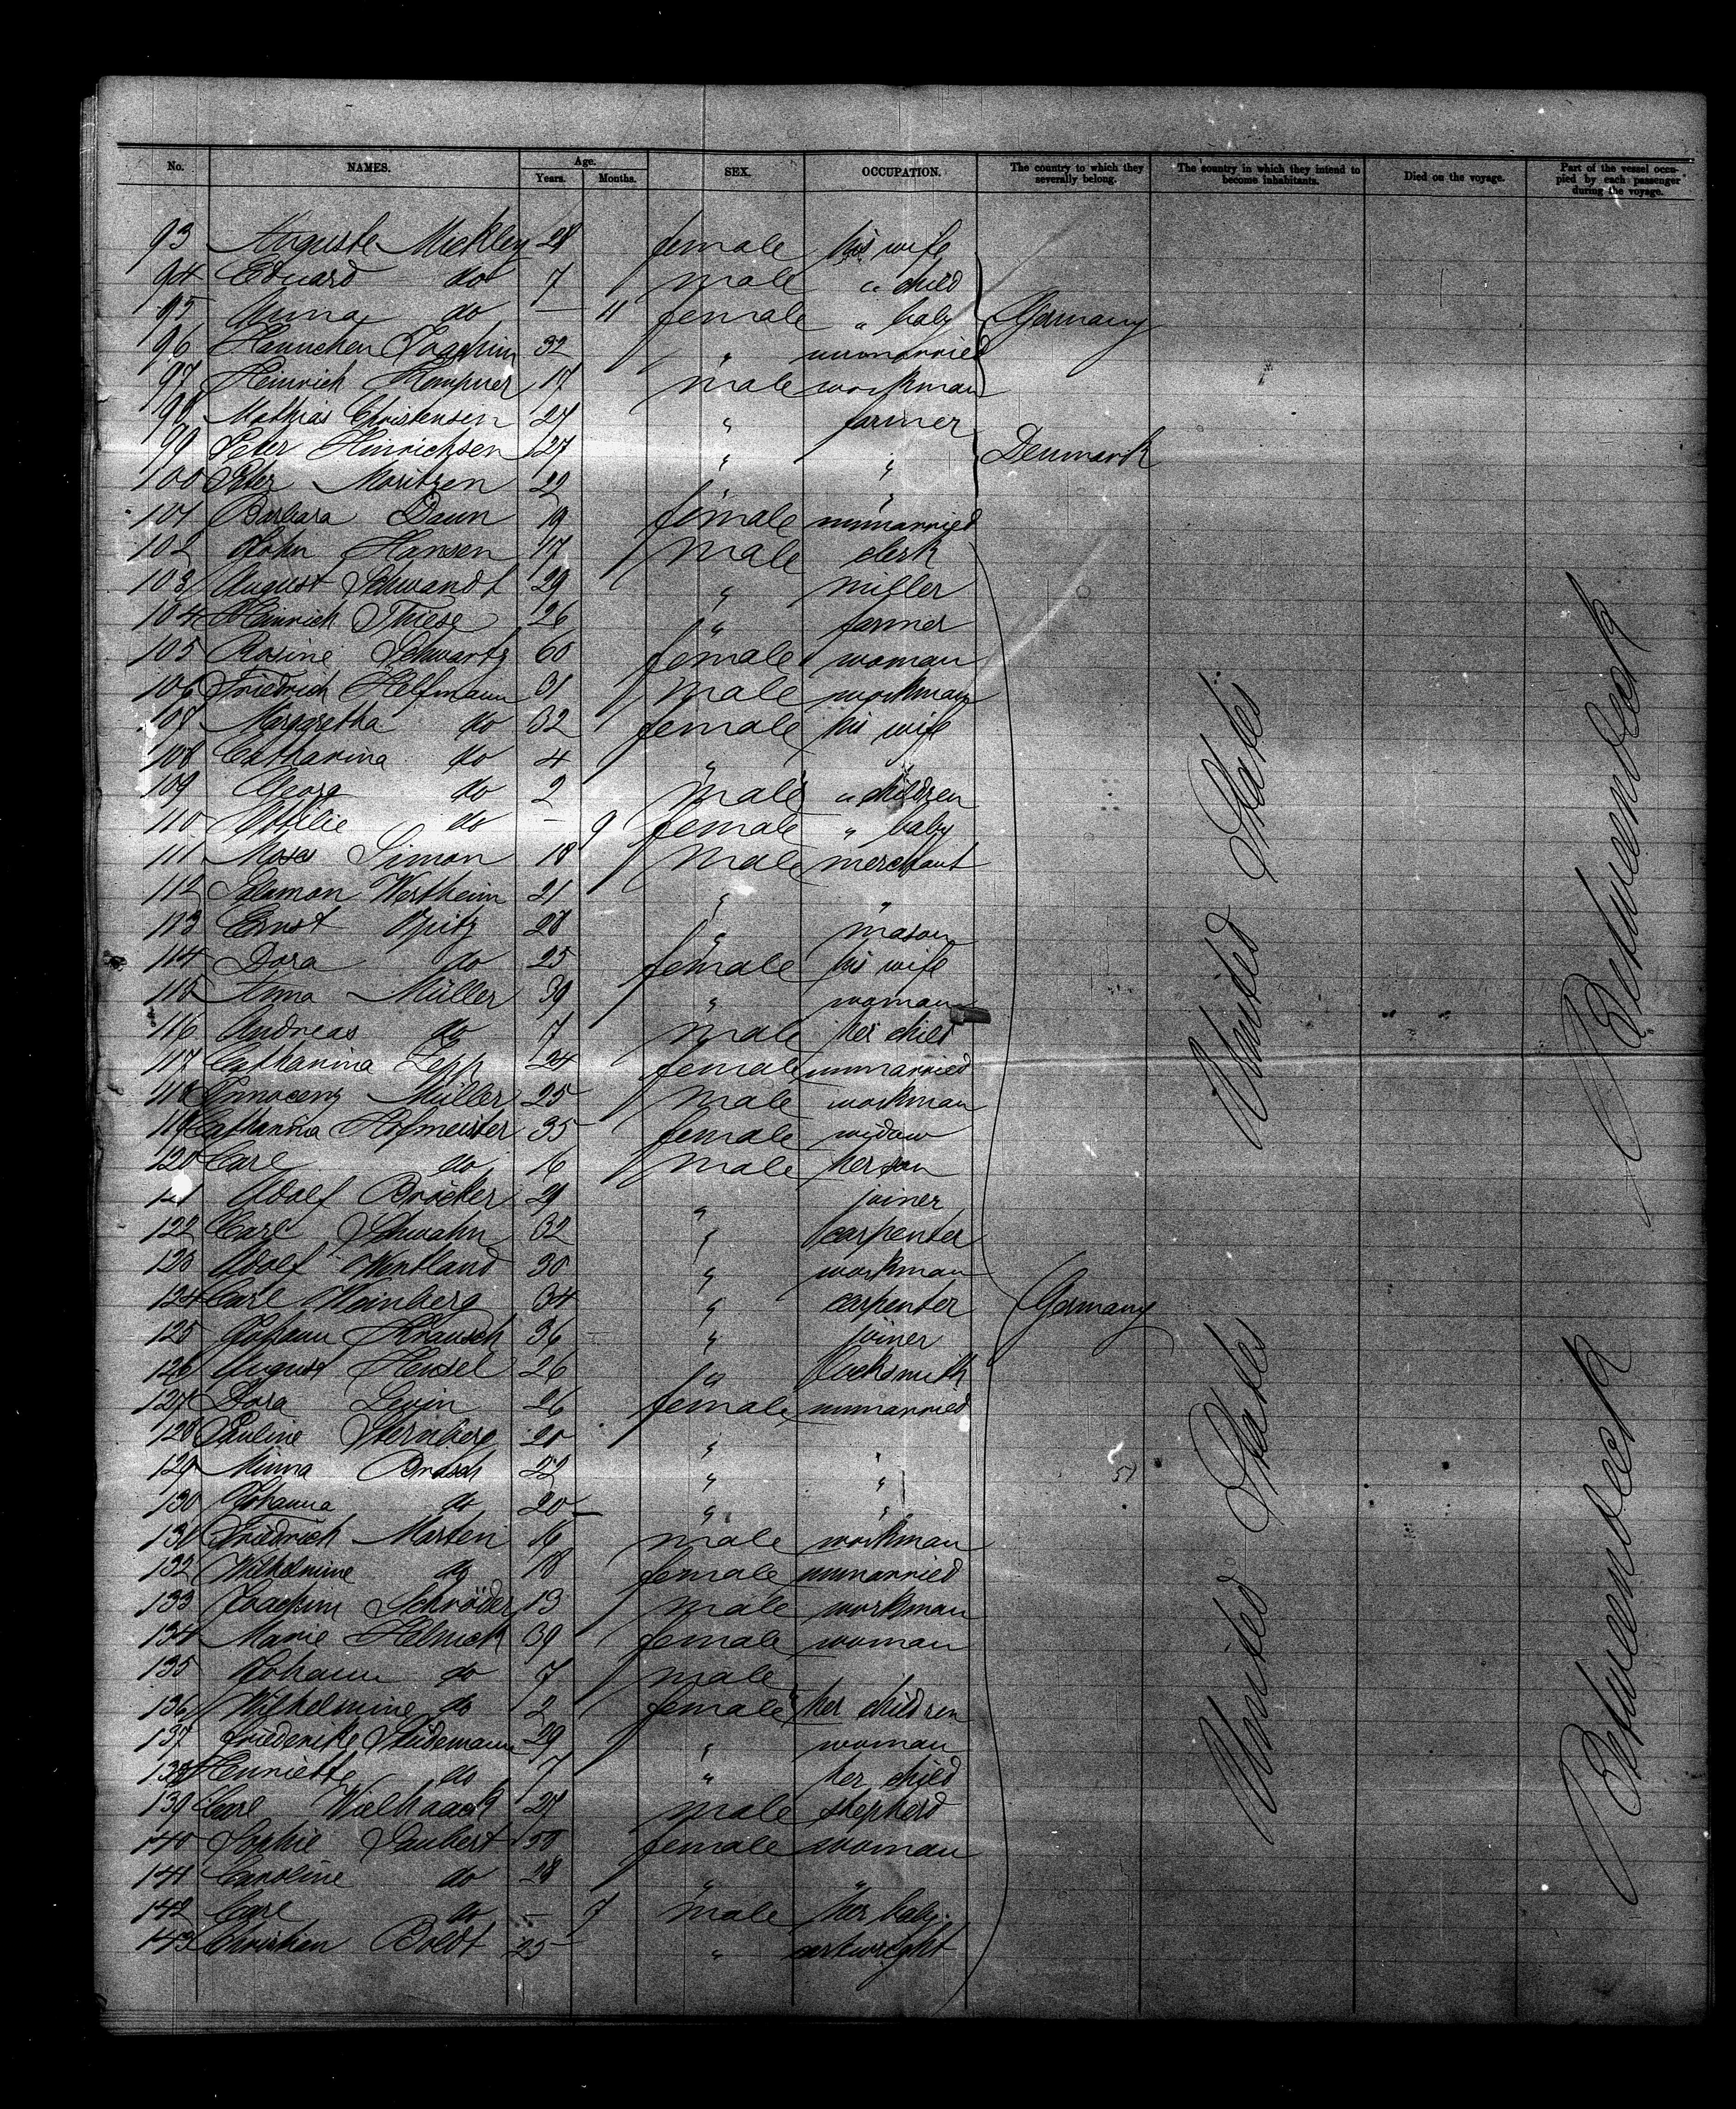 No. NAMES. Age. Years. Months. SEX. OCCUPATION. The country to which they severally belong. The country in which they intend to become inhabitants. Died on the voyage. Part of the vessel occupied by each passenger during the voyage.
93 Auguste Mickley 28 female his wife
94 Eduard do 7 male " child
95 Anna do — 11 female " baby Germany
96 Hannchen Joachim 32 " unmarried
97 Heinrich Kempner 17 male workman
98 Mathias Christensen 27 " farmer
99 Peter Hinrichsen 27 " " Denmark
100 Peter Moritzen 22 " "
101 Barbara Daun 19 female unmarried
102 John Hansen 17 male clerk
103 August Schwandt 29 " miller
104 Heinrich Thiese 26 " farmer
105 Rosine Schwartz 60 female woman
106 Friedrich Helfmann 31 male workman
108 Margaretha do 32 female his wife
108 Catharina do 4 "
109 Georg do 2 male " children
110 Ottilie do — 9 female " baby
111 Moses Simon 18 male merchant
112 Salomon Wertheim 21 " "
113 Ernst Opitz 28 " mason
114 Dora do 25 female his wife
115 Anna Müller 39 " woman
116 Andreas do 7 male her child
117 Catharina Zepp 24 female unmarried
118 Innocenz Müller 25 male workman
119 Catharina Hofmeister 35 female widow
120 Carl do 16 male her son
121 Adolf Bröcker 29 " joiner
122 Carl Schwahn 32 " carpenter
123 Adolf Wentland 30 " workman
124 Carl Weinberg 34 " carpenter Germany
125 Johann Krausch 36 " joiner
126 August Hensel 26 " locksmith
127 Dora Levin 26 female unmarried
128 Pauline Sternberg 20 " "
129 Minna Brasch 22 " "
130 Johanna do 20 " "
131 Friedrich Marten 16 male workman
132 Wilhelmine do 18 female unmarried
133 Joachim Schröder 13 male workman
134 Marie Helmick 39 female woman
135 Johann do 7 male
136 Wilhelmine do 2 female her children
137 Friederike Stüdemann 29 " woman
138 Henriette do 7 " her child
139 Carl Wielhaack 27 male shepherd
140 Sophie Saubert 50 female woman
141 Caroline do 28 " "
142 Carl do — 7 male her baby.
143 Christian Boldt 25 " cartwright
United States
United States
Betweendeck
Betweendeck